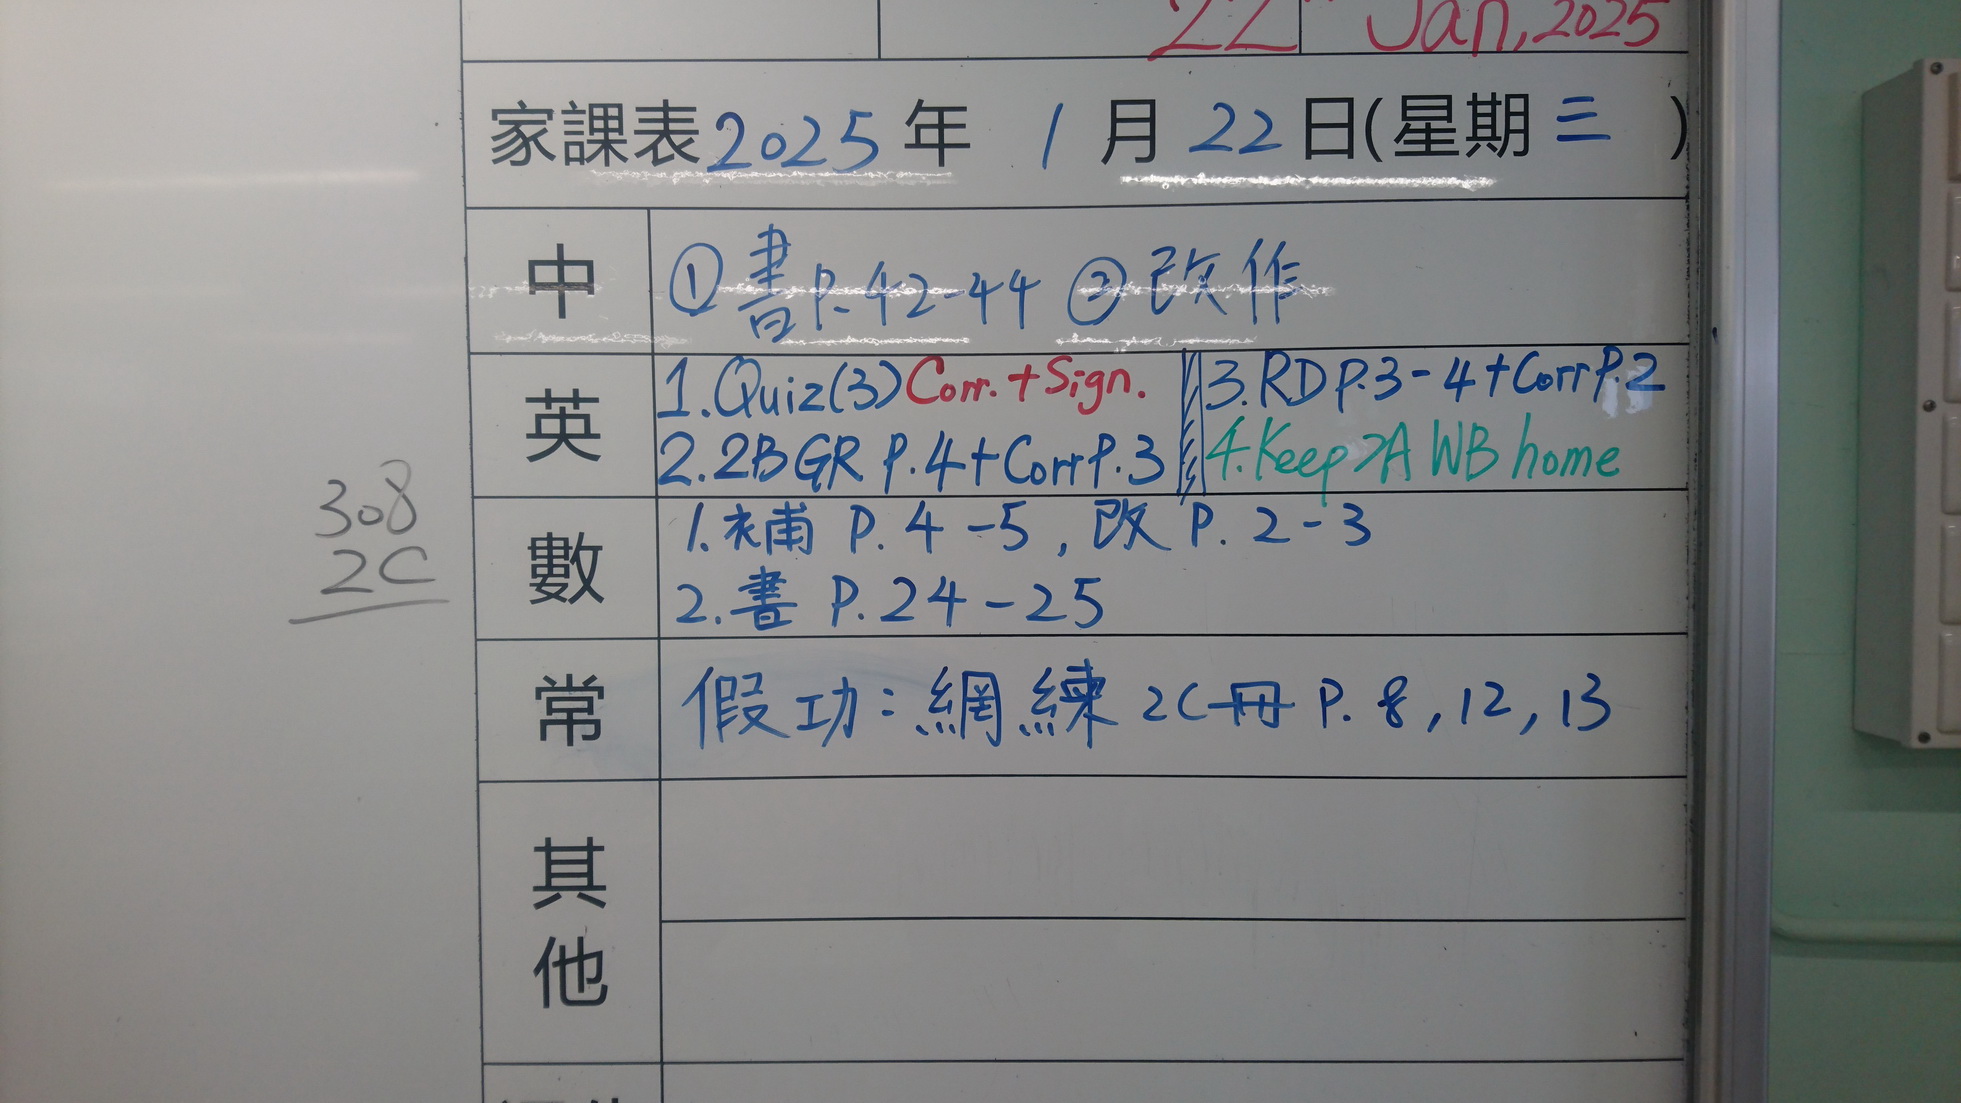 22 Jan, 2025
家課表2025年 1月22日(星期三)
中
①書P.42-44 ②改作
英
1.Quiz(3)Corr.+Sign.
2.2B GR P.4+Corr P.3
3.RD P.3-4+Corr P.2
4.Keep 2A WB home
數
1.補 P.4-5,改 P.2-3
2.書 P.24-25
常
假功:網練 2C冊 P.8,12,13
其他
308
2C